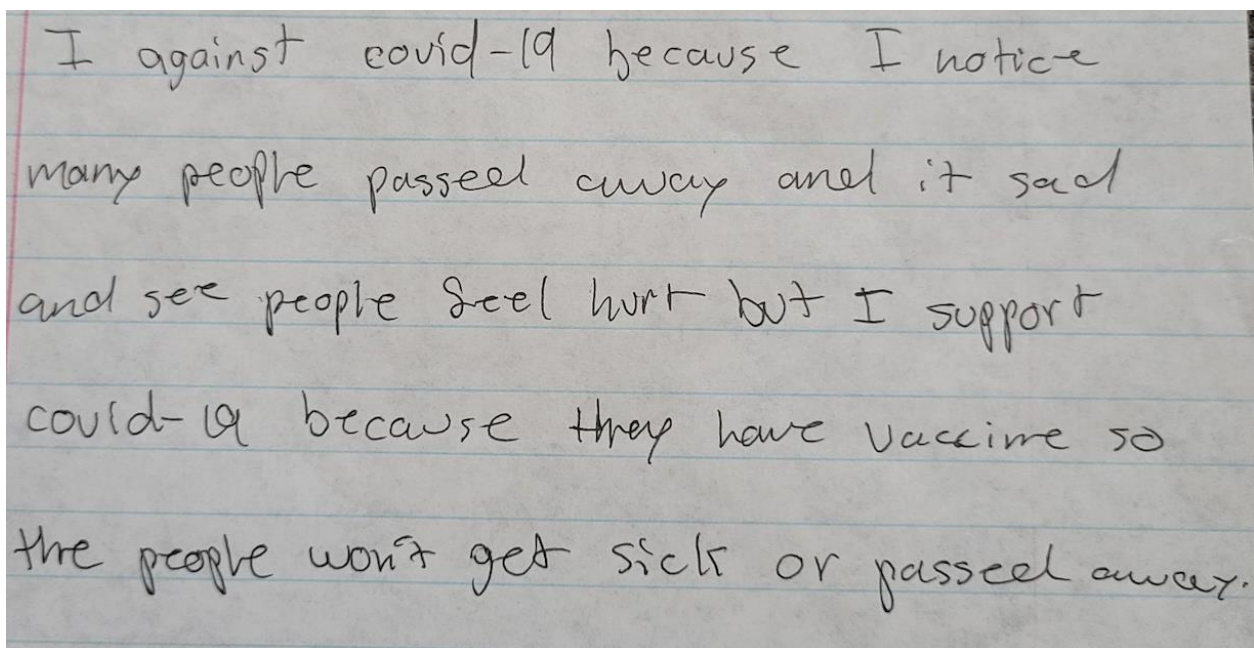 I against covid-19 because I notice
many people passed away and it sad
and see people feel hurt but I support
covid-19 because they have vaccine so
the people won't get sick or passed away.